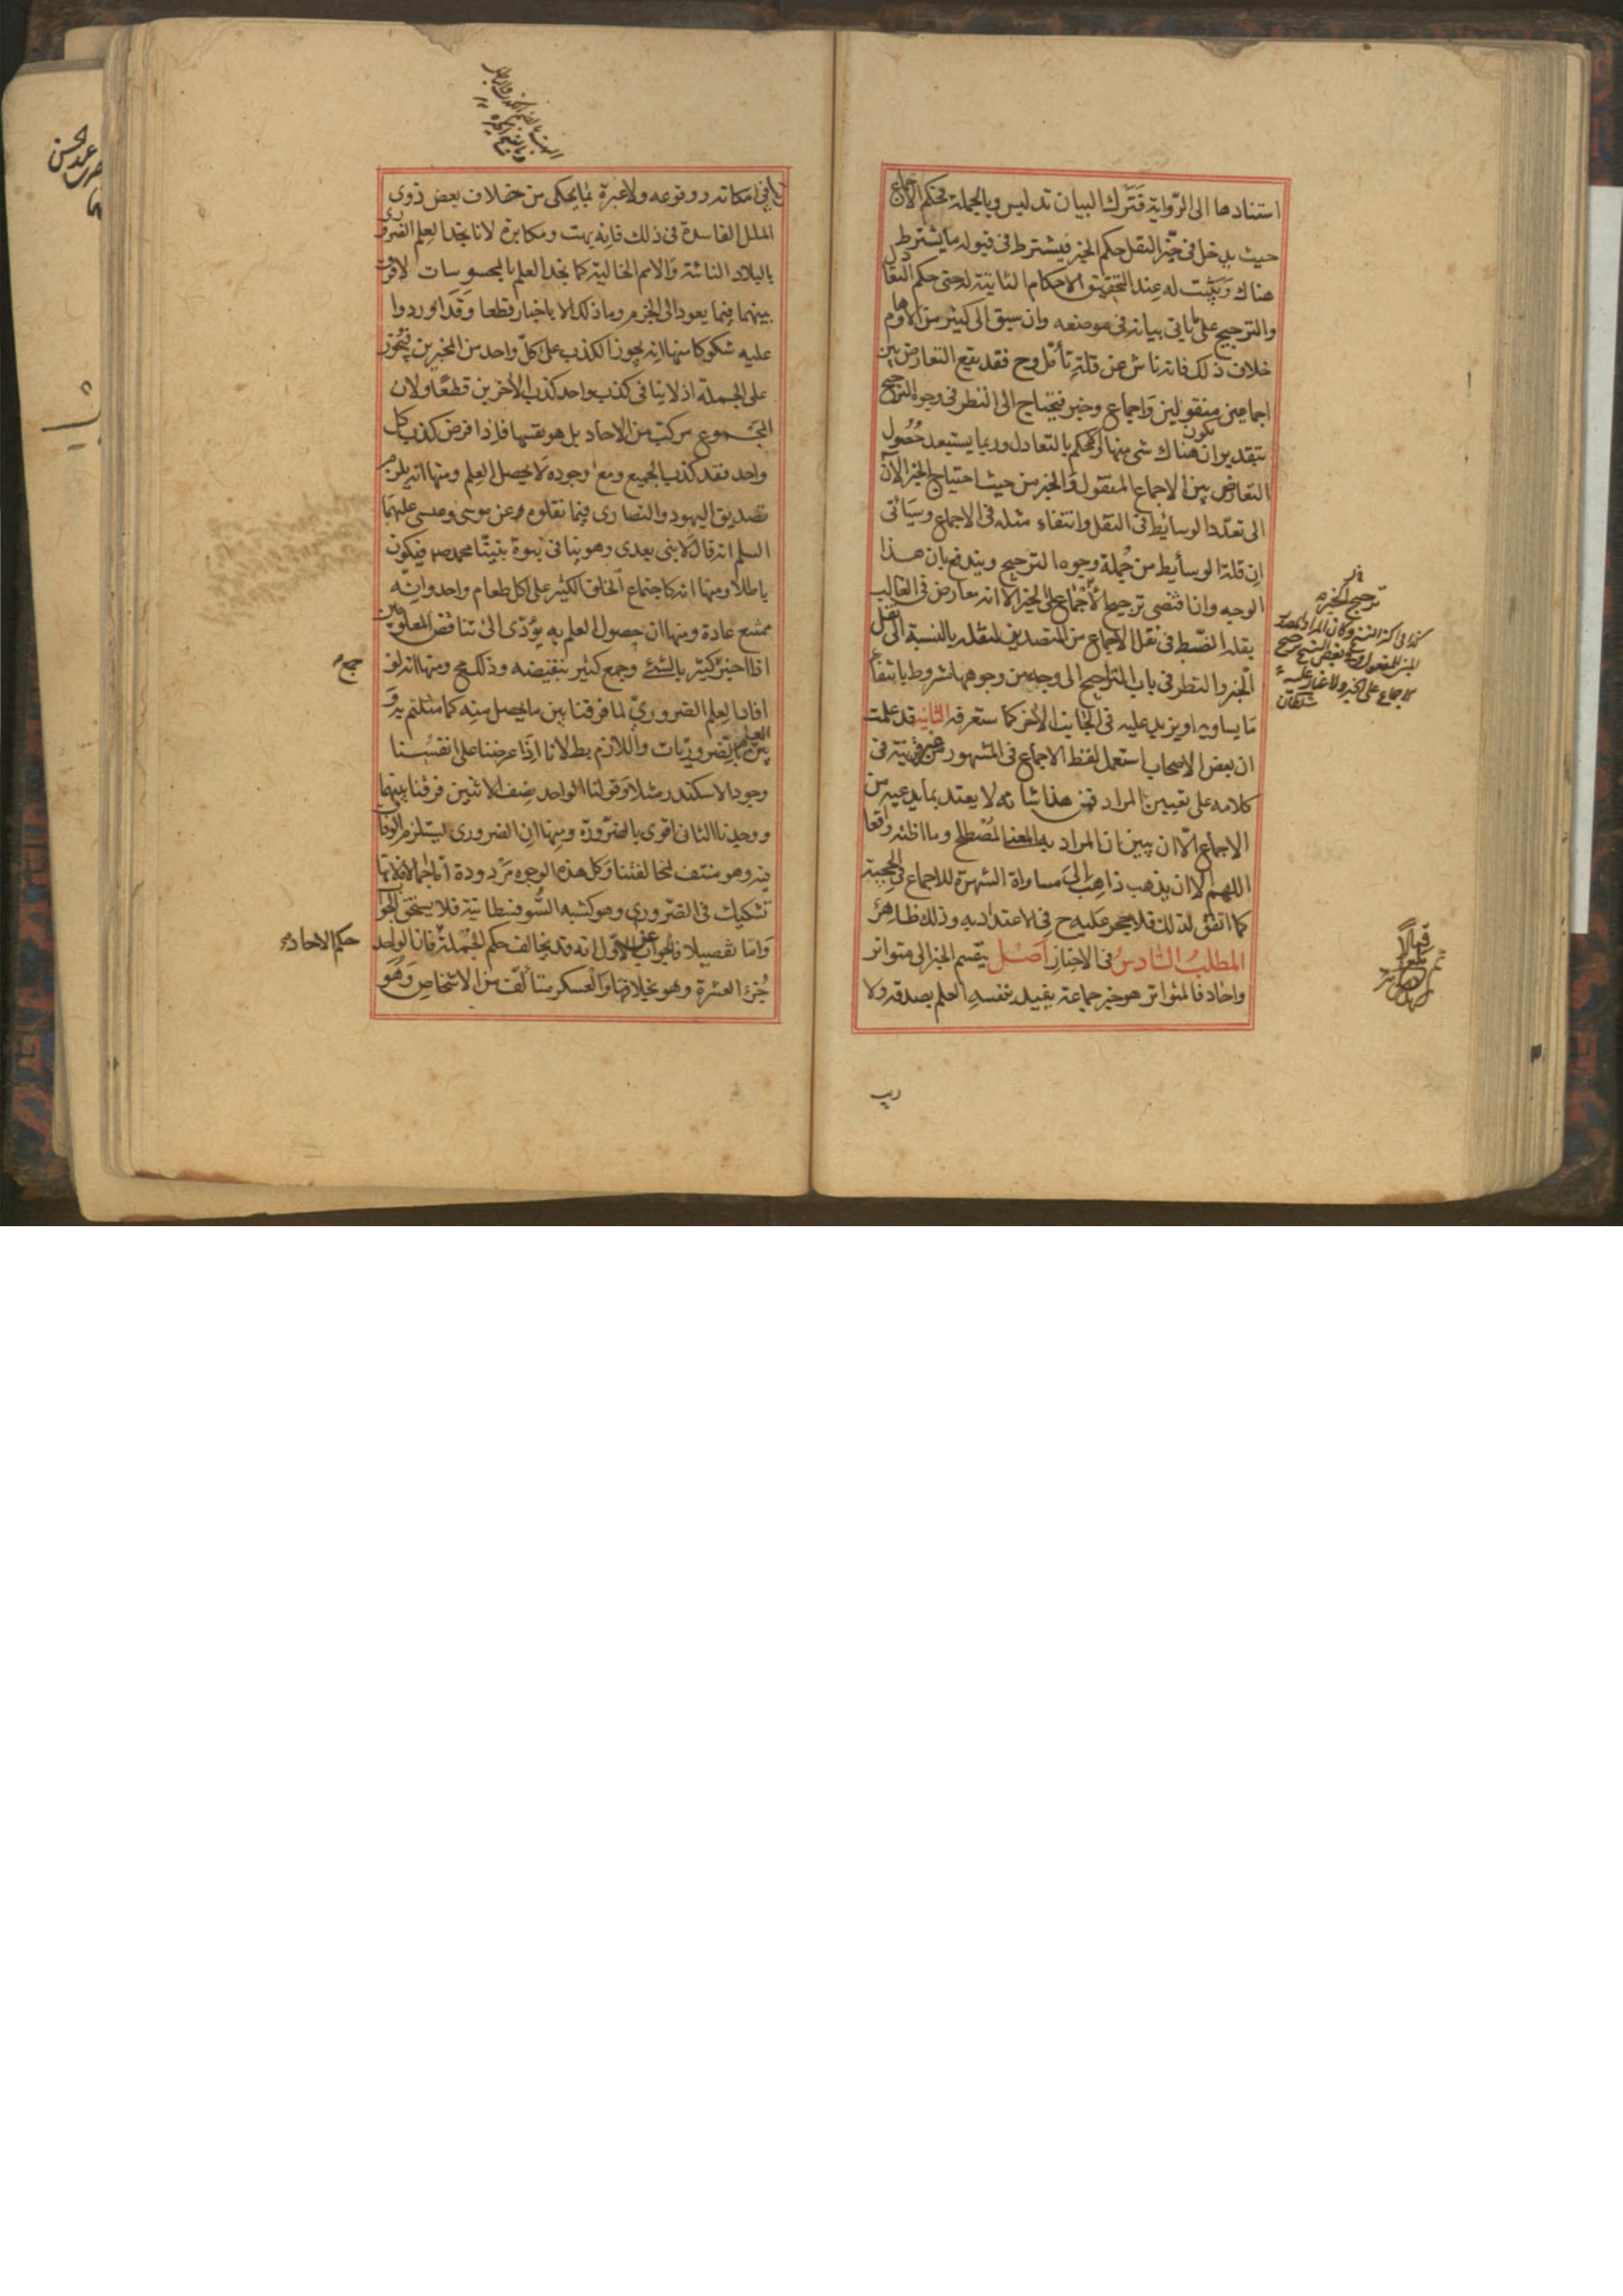 استنادها الى الرّواية فَتَرك البيان تدليس وبالجملة فحكم الاجماع
حيث يدخل فى حيّز النقل حكم الخبر فيشترط فى قبوله ما يشترط
هناك ويثبت له عند التحقيق الاحكام الثابتة له حتى حكم التعادل
والترجيح على ما ياتى بيانه فى موضعه وان سبق الى كثير من الاوهام
خلاف ذلك فانه ناش عن قلة تأمّل وح فقد يقع التعارض بين
اجماعين منقولين وَاجماع وخبر فيحتاج الى النظر فى وجوه الترجيح
بتقدير ان يكون هناك شى منها والا حكم بالتعادل وربما يستبعد حُصُول
التعارض بين الاجماع المنقول والخبر من حيث احتياج الخبر الآن
الى تعدّد الوسائط فى النقل وانتفاء مثله فى الاجماع وسيَأتى
ان قلة الوسأيط من جُملة وجوه الترجيح ويندفع بان هذا
الوجه وان اقتضى ترجيح الاجماع على الخبر الا انه معارض فى الغالب
بقلة الضّبط فى نقل الاجماع من المتصدين لنقله بالنسبة الى نقل
الخبر والنظر فى باب التراجيح الى وجه من وجوهها مشروط بانتفاء
مَا يساويه او يزيد عليه فى الجانب الأخر كما ستعرفه الثانية قد علمت
ان بعض الاصحاب استعمل لفظ الاجماع فى المشهور من غير قرينة فى
كلامه على تعيين المراد فمن هذا شانه لا يعتد بما يدعيه من
الاجماع الّا ان يبين ان المراد به المعنى المُصْطلح وما اظنه واقعا
اللهم الا ان يذهب ذاهِب الىَ مساواة الشهرة للاجماع فى الحجية
كما اتفق لذلك فلا حجر عَليه ح فى الاعتداد به وذلك ظاهِر
المطلبُ السّادسُ فى الاخبار اَصْل ينقسم الخبر الى متواتر
واحَاد فالمتواتر هو خبر جماعة يفيد بنفسهِ العلم بصدقه ولا
ريب
ترجيح الخبر
كذا فى اكثر النسخ وكان المراد
وفى بعض النسخ ترجيح
الاجماع على الخبر ولا غبار عليه
سلطان
ريب فى امكانه ووقوعه ولا عبرة بما يحكى من خلاف بعض ذوى
الملل الفاسدة فى ذلك فانه بهت ومكابرة لانا نجد العِلم الضرورى
بالبلاد النائية وَالامم الخالية كما نجد العلم بالمحسوسات لا فرق
بينهما فيما يعود الى الجزم وما ذلك الا بالاخبار قطعا وَقَد اوردوا
عليه شكوكا منها انه يجوز الكذب على كلّ واحد من المخبرين فيجُوز
على الجملة اذ لا ينافى كذب واحد كذب الأخرين قطعًا ولان
المجَموع مركب من الاحاد بل هو نفسها فاذا فرض كذب كل
واحد فقد كذب الجميع ومع وجوده لا يحصل العِلم ومنها انه يلزم
تصديق اليهود والنصارى فيما نقلوه عن موسى وعيسى عليهما
السلم انه قال لا نبى بعدى وهو ينافى نبوة نبينّا محمد ص فيكون
باطلا ومنها انه كاجتماع الخلق الكثير على اكل طعام واحد وانّه
ممتنع عادة ومنها ان حصول العلم به يؤدّى الى تناقض المعلومين
اذا اخبر كثير بالشئ وجمع كثير بنقيضه وذلك مح ومنها انه لو
افاد العِلم الضرورىّ لما فرقنا بين ما يحصل منه كما مثلتم به وَ
بين العلم بالضروريّات واللازم بط لانا اذا عرضنا على انفُسنا
وجود الاسكندر مثلا وَقولنا الواحد نِصف الاثنين فرقنا بينهما
ووجدنا الثانى اقوى بالضرورة ومنها ان الضرورى يستلزم الوفاق
فيه وهو منتف لمخالفتنا وَكل هذه الوجوه مَردودة امّا اجمالا فلانها
تشكيك فى الضرورى وهو كشبه السُّوفسطائية فلا يستحق الجواب
وَامّا تفصيلا فالجواب عن الاوّل انه قد يخالف حكم الجُملة فان الواحد
جُزء العشرة وهو بخلافها وَالعسكر متألّف من الاشخاص وَهُوَ
حكم الاحاد